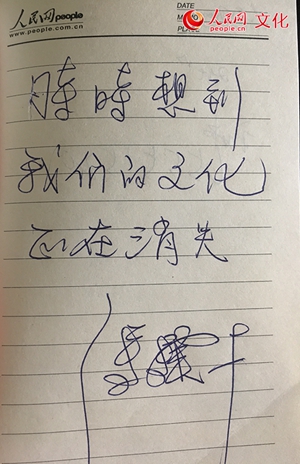 人民网 people
www.people.com.cn
DATE
人民网 文化
people.cn
時時想到
我们的文化
正在消失